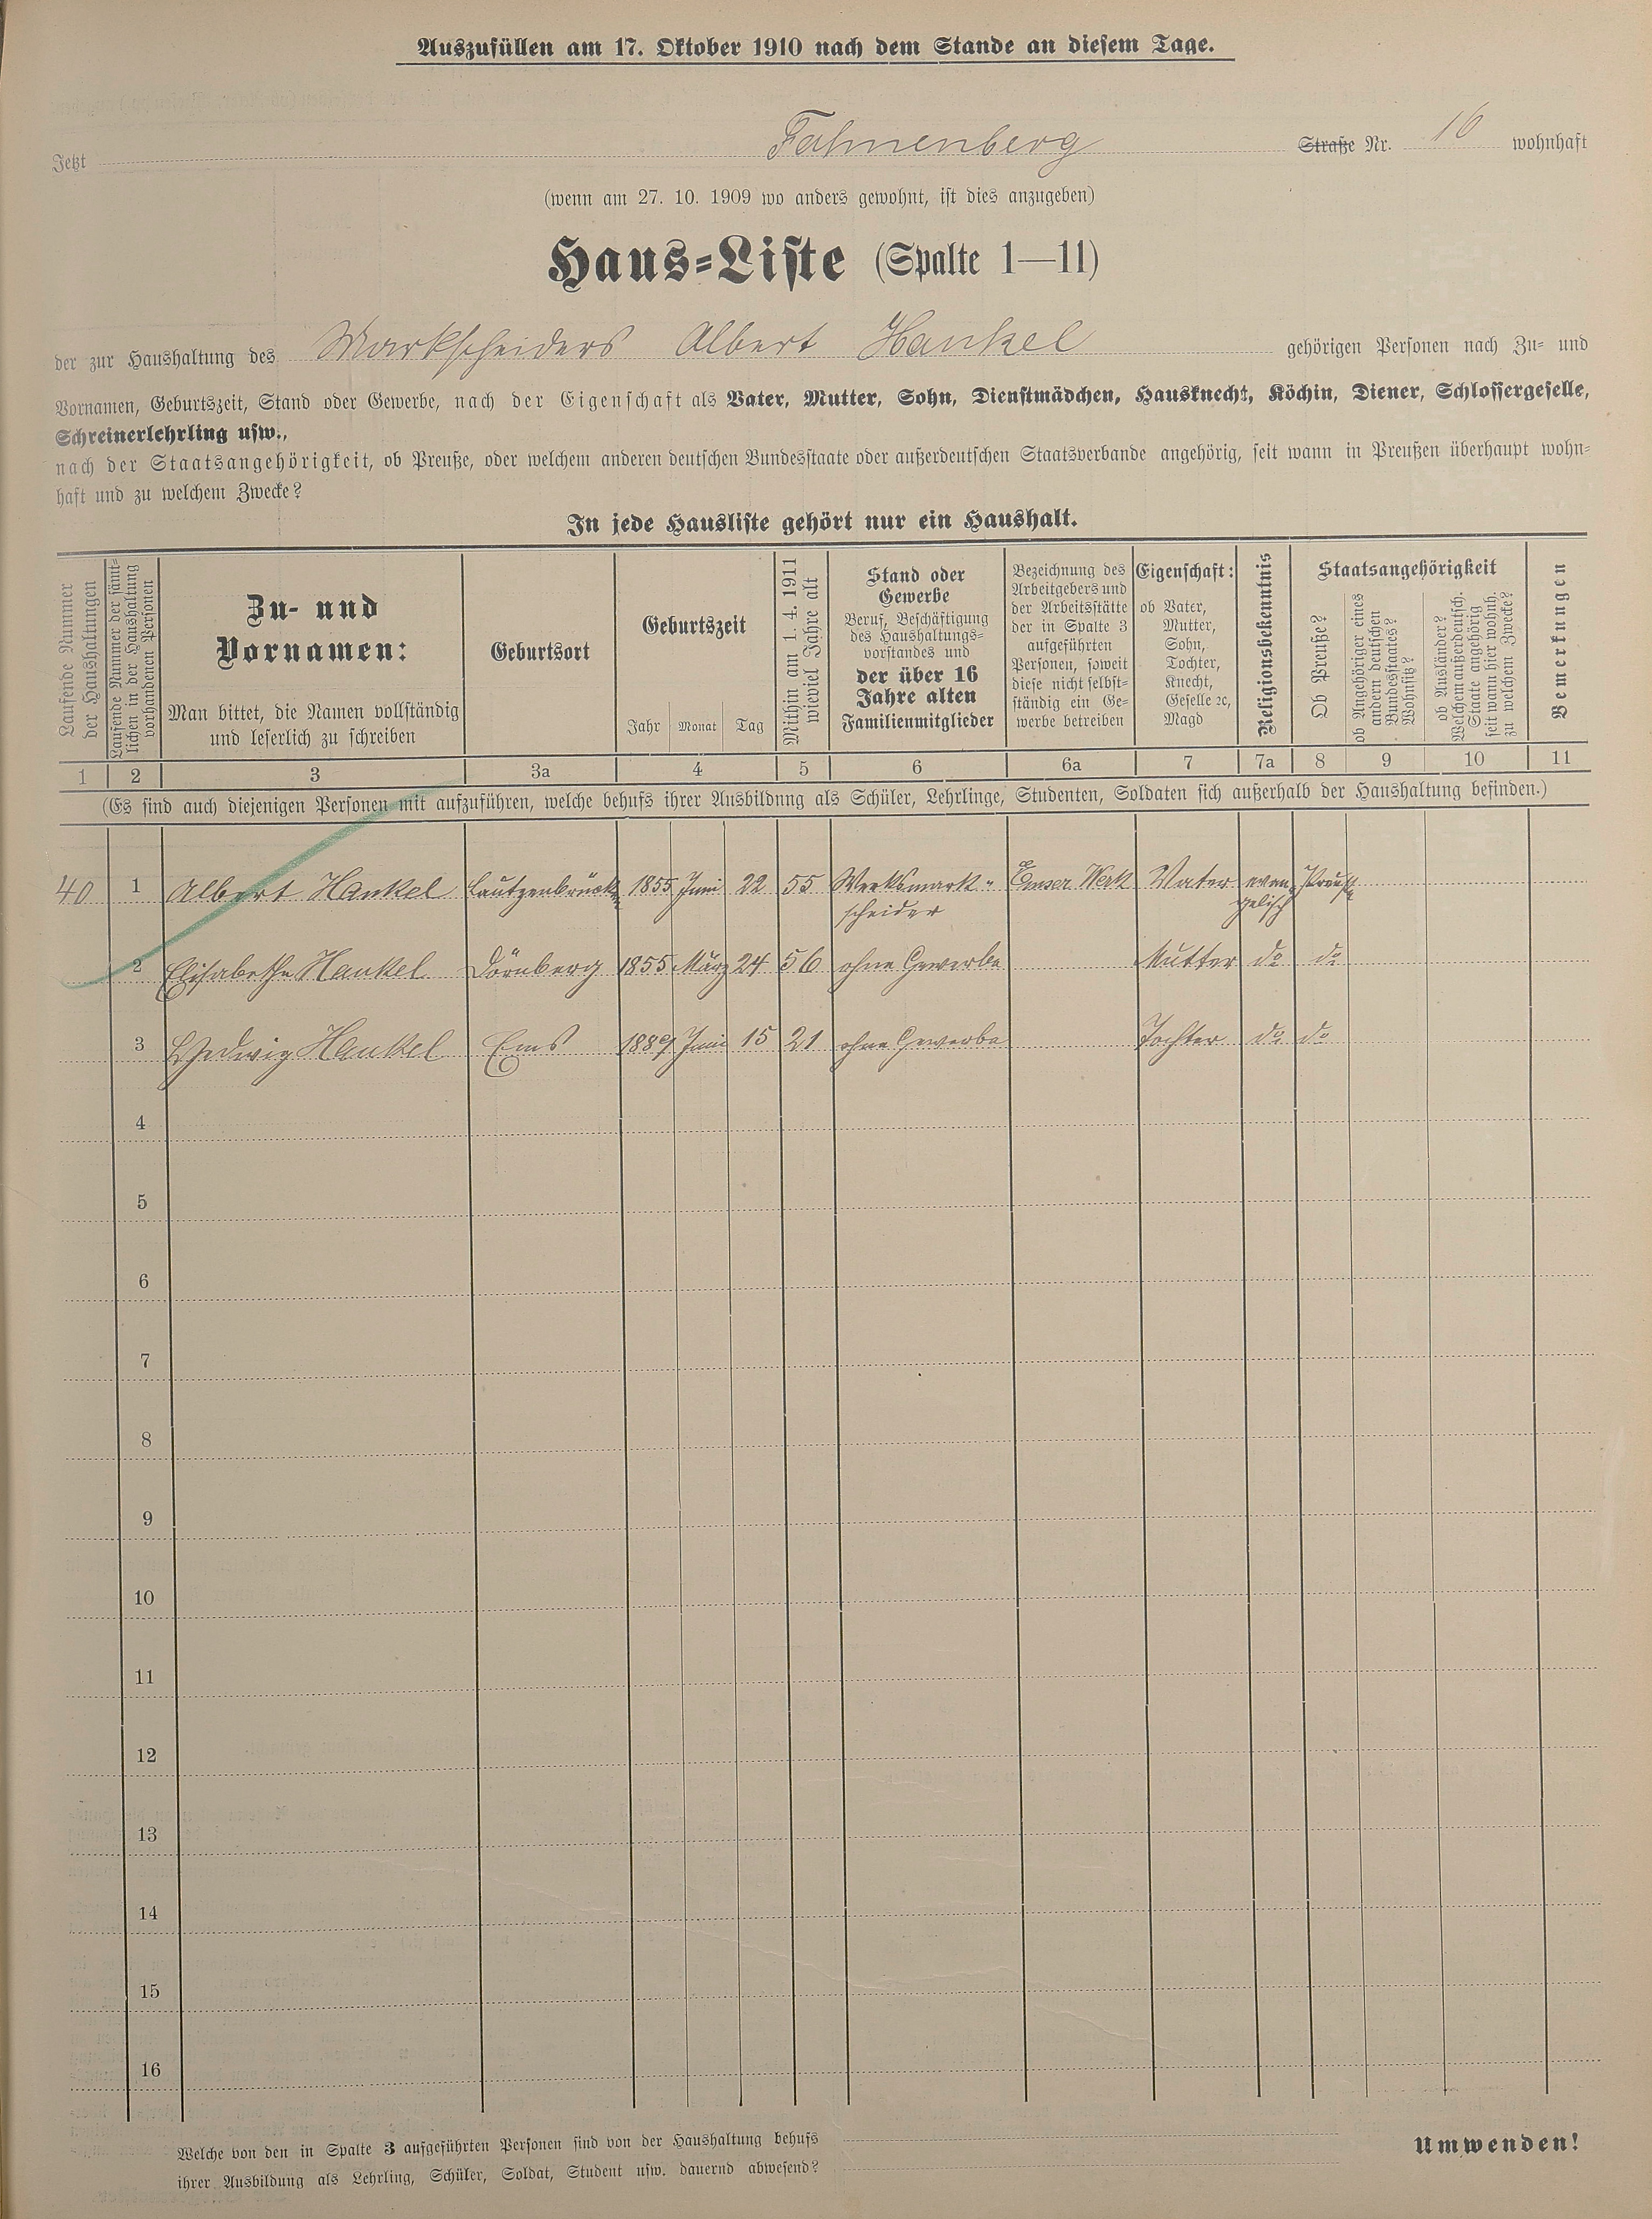 Auszufüllen am 17. Oktober 1910 nach dem Stande an diesem Tage.
Jetzt Fahnenberg Straße Nr. 16 wohnhaft
(wenn am 27. 10. 1909 wo anders gewohnt, ist dies anzugeben)
Haus-Liste (Spalte 1—11)
der zur Haushaltung des Markscheiders Albert Hankel gehörigen Personen nach Zu- und
Vornamen, Geburtszeit, Stand oder Gewerbe, nach der Eigenschaft als Vater, Mutter, Sohn, Dienstmädchen, Hausknecht, Köchin, Diener, Schlossergeselle,
Schreinerlehrling usw.,
nach der Staatsangehörigkeit, ob Preuße, oder welchem anderen deutschen Bundesstaate oder außerdeutschen Staatsverbande angehörig, seit wann in Preußen überhaupt wohn-
haft und zu welchem Zwecke?
In jede Hausliste gehört nur ein Haushalt.
Laufende Nummer
der Haushaltungen
Laufende Nummer der sämt-
lichen in der Haushaltung
vorhandenen Personen
Zu- und
Vornamen:
Man bittet, die Namen vollständig
und leserlich zu schreiben
Geburtsort
Geburtszeit
Jahr Monat Tag
Mithin am 1. 4. 1911
wieviel Jahre alt
Stand oder
Gewerbe
Beruf, Beschäftigung
des Haushaltungs-
vorstandes und
der über 16
Jahre alten
Familienmitglieder
Bezeichnung des
Arbeitgebers und
der Arbeitsstätte
der in Spalte 3
aufgeführten
Personen, soweit
diese nicht selbst-
ständig ein Ge-
werbe betreiben
Eigenschaft:
ob Vater,
Mutter,
Sohn,
Tochter,
Knecht,
Geselle ꝛc,
Magd
Religionsbekenntnis
Staatsangehörigkeit
Ob Preuße?
ob Angehöriger eines
andern deutschen
Bundesstaates?
Wohnsitz?
ob Ausländer?
Welchem außerdeutsch.
Staate angehörig
seit wann hier wohnh.
zu welchem Zwecke?
Bemerkungen
1 2 3 3a 4 5 6 6a 7 7a 8 9 10 11
(Es sind auch diejenigen Personen mit aufzuführen, welche behufs ihrer Ausbildung als Schüler, Lehrlinge, Studenten, Soldaten sich außerhalb der Haushaltung befinden.)
40 1 Albert Hankel Lautzenbrücken 1855 Juni 22 55 Werksmark- Emser Werk Vater evan- Preuße
scheider gelisch
2 Elisabethe Hankel Dörnberg 1855 März 24 56 ohne Gewerbe Mutter do do
3 Hedwig Hankel Ems 1889 Juni 15 21 ohne Gewerbe Tochter do do
4
5
6
7
8
9
10
11
12
13
14
15
16
Welche von den in Spalte 3 aufgeführten Personen sind von der Haushaltung behufs
ihrer Ausbildung als Lehrling, Schüler, Soldat, Student usw. dauernd abwesend?
Umwenden!